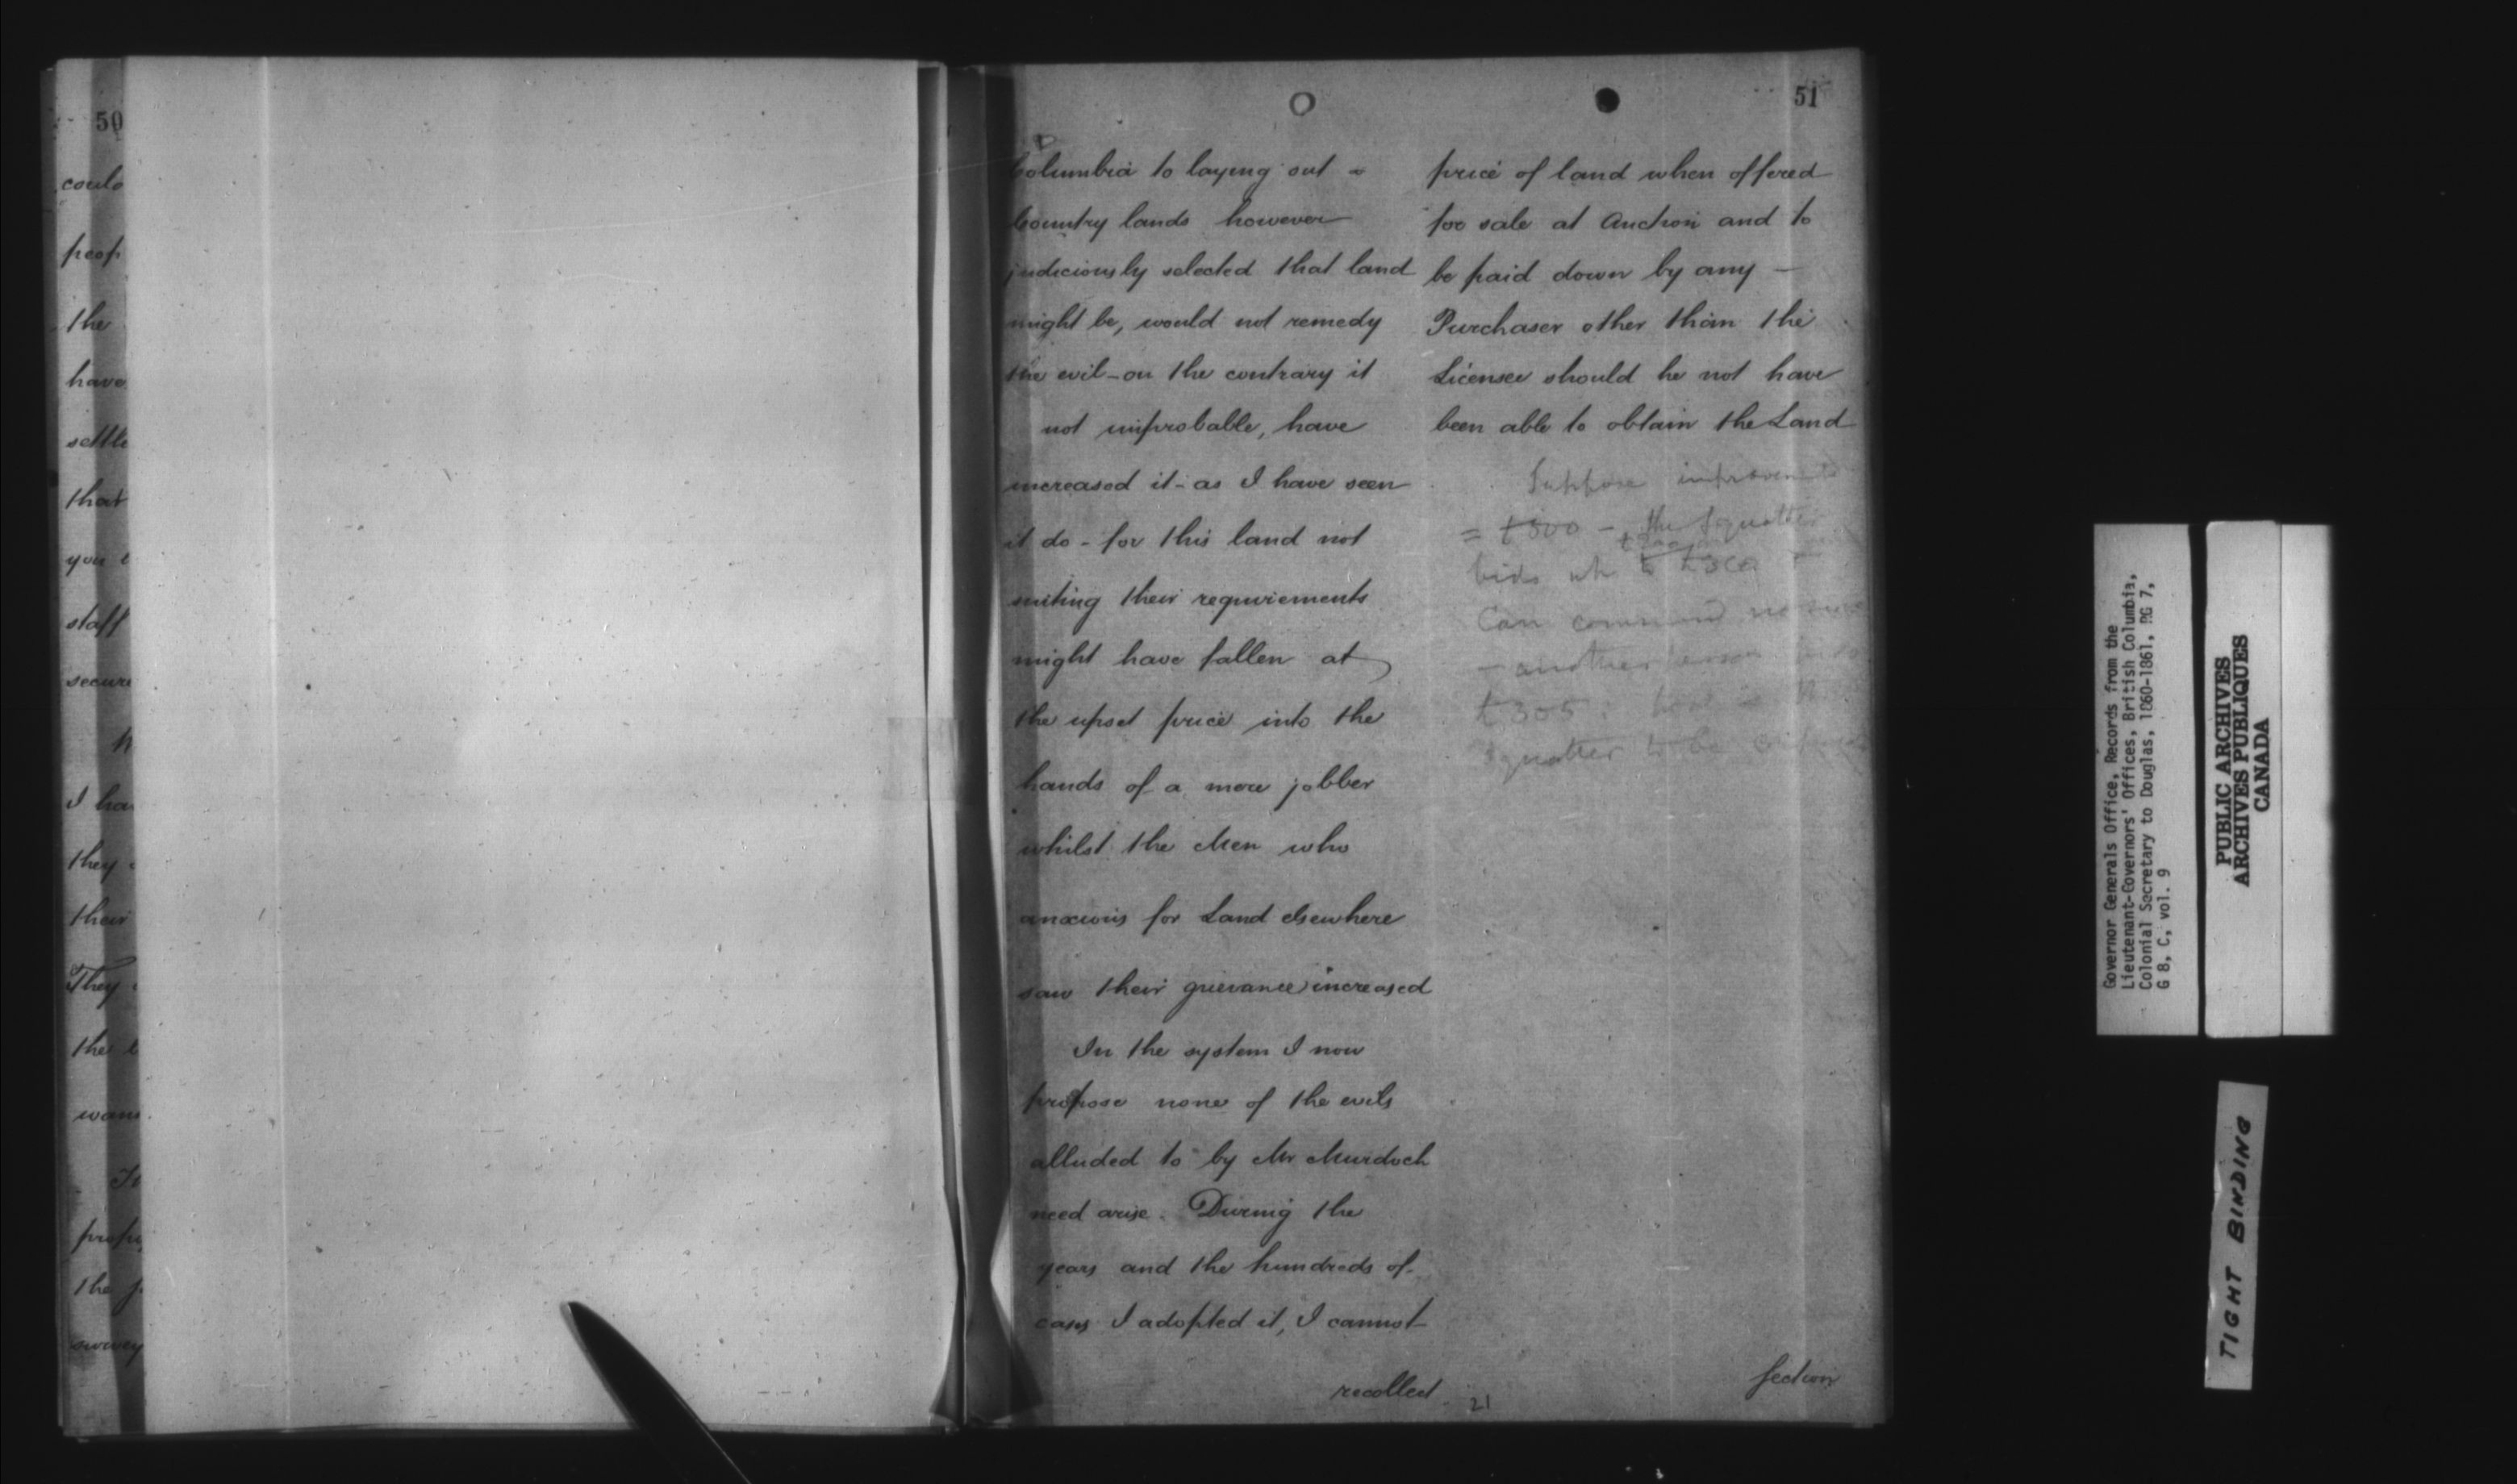 50
coulo
peop
the
have
settle
that
you
staff
secure
I ha
they
their
They
the
wan
prop
the
survey
51
Columbia to laying out
Country lands however
judiciously selected that land
might be, would not remedy
the evil - on the contrary it
not improbable, have
increased it - as I have seen
it do - for this land not
suiting their requirements
might have fallen at
the upset price into the
hands of a mere jobber
whilst the Men who
anxious for Land elsewhere
saw their grievance increased
In the system I now
propose none of the evils
alluded to by Mr Murdoch
need arise. During the
years and the hundreds of
cases I adopted it, I cannot
recollect
21
price of land when offered
for sale at Auction and to
be paid down by any —
Purchaser other than the
Licensee should he not have
been able to obtain the Land
Suppose improvements
= £300 - the Squatter
bids £300
Can command no
- another
£305
Squatter to be
Section
Governor Generals Office, Records from the
Lieutenant-Governors' Offices, British Columbia,
Colonial Secretary to Douglas, 1860-1861, RG 7,
G 8, C, vol. 9
PUBLIC ARCHIVES
ARCHIVES PUBLIQUES
CANADA
TIGHT BINDING